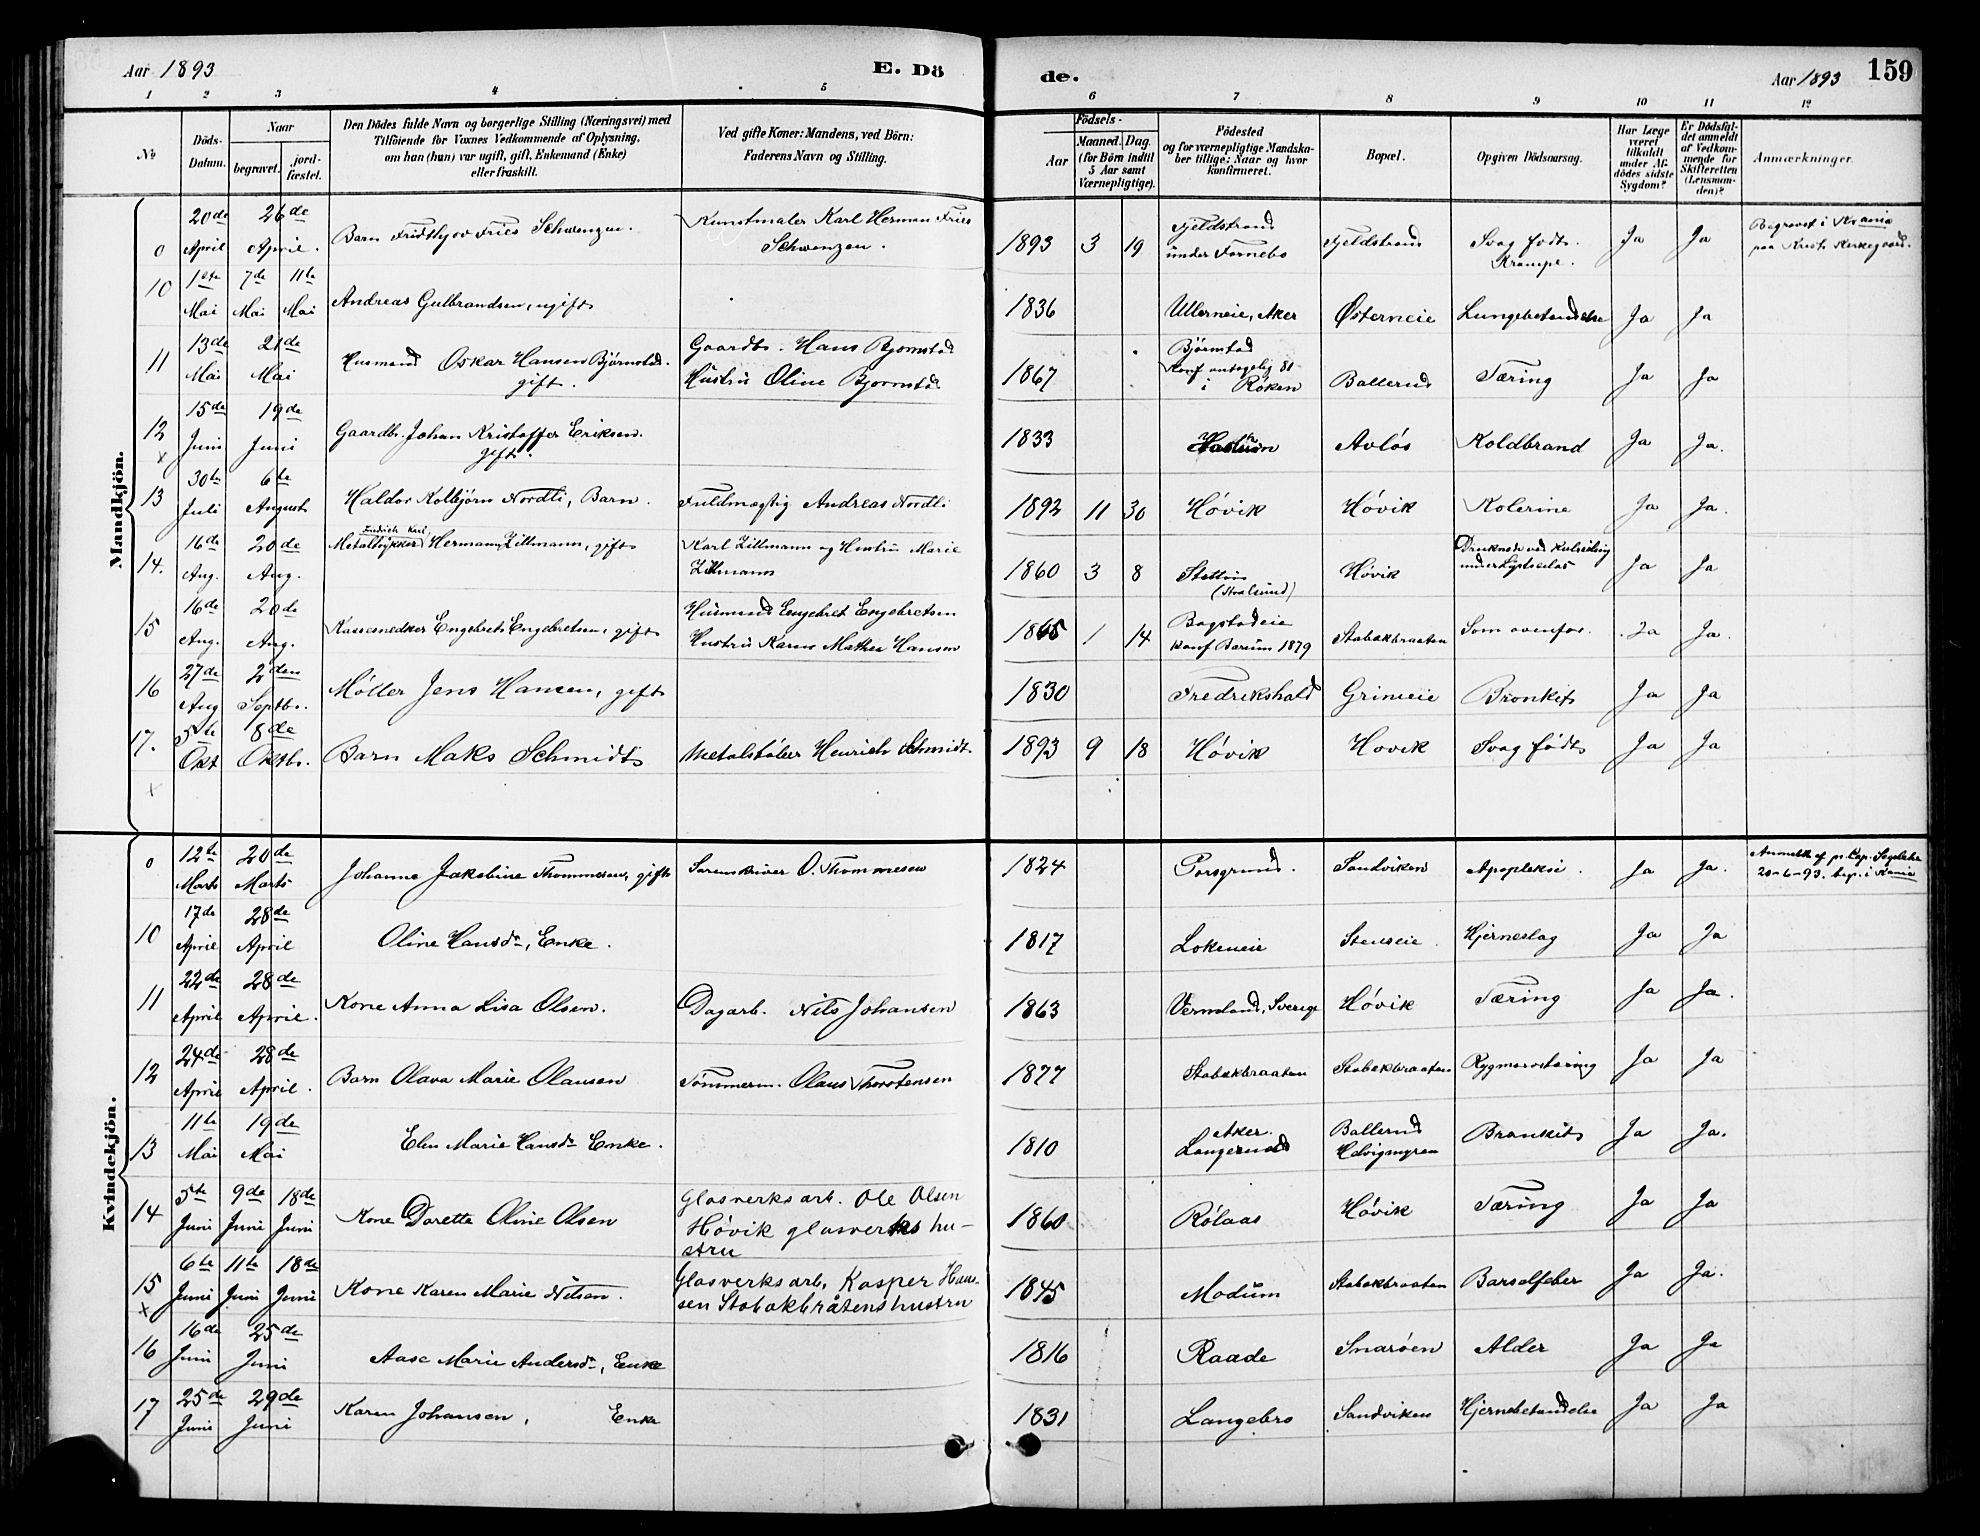 Aar 1893
E. Dö
de.
Aar 1893
159
1 2 3 4 5 6 7 8 9 10 11 12
No
Döds-Datum.
Naar
begravet.
jord-fæstet.
Den Dödes fulde Navn og borgerlige Stilling (Næringsvei) med
Tilföiende for Voxnes Vedkommende af Oplysning,
om han (hun) var ugift, gift, Enkemand (Enke)
eller fraskilt.
Ved gifte Koner: Mandens, ved Börn:
Faderens Navn og Stilling.
Födsels-
Aar
Maaned. Dag.
(for Börn indtil
5 Aar samt
Værnepligtige).
Födested
og for værnepligtige Mandska-
ber tillige: Naar og hvor
konfirmeret.
Bopæl.
Opgiven Dödsaarsag.
Har Læge
været
tilkaldt
under Af-
dödes sidste
Sygdom?
Er Dödsfal-
det anmeldt
af Vedkom-
mende for
Skifteretten
(Lensman-
den)?
Anmærkninger.
Mandkjön.
0 20de April 26de April. Barn Fridthjov Fries Schwenzen. Kunstmaler Karl Herman Fries Schwenzen. 1893 3 19 Fjeldstrand under Fornebo Fjeldstrand Svag födt. Krampe. Ja Ja Begravet i Krania paa Krist. Kirkegaard.
10 1ste Mai 7de Mai 11te Mai Andreas Gulbrandsen, ugift 1836 Ullerneie, Aker Østerneie Lungebetændelse Ja Ja
11 13de Mai 21de Mai Husmand Oskar Hansen Bjørnstad. gift. Gaardbr. Hans Bjornstad Hustru Oline Bjornstad 1867 Bjørnstad Konf antagelig 81 i Röken Ballerud Tæring Ja Ja
12 x 15de Juni 19de Juni Gaardbr. Johan Kristoffer Eriksen. gift. 1833 Avlös Koldbrand Ja Ja.
13 30te Juli 6te August Haldor Kolbjørn Nordli, Barn. Fuldmægtig Andreas Nordli 1892 11 30 Hövik Hövik Kolerine Ja Ja.
14. 16de Aug. 20de Aug. Fredrich Karl Metaltrykker Hermann Zillmann, gift Karl Zillmann og Hustru Marie Zillmann 1860 3 8 Stettin (Stralsund) Hövik Druknede ved Kulseiling under Lystseilas Ja Ja
15 16de Aug. 20de Aug. Kassesnedker Engebret Engebretsen, gift Husmand Engebret Engebretsen Hustru Karen Mathea Hansen 1865 1 14 Bogstadeie Konf Bærum 1879 Stabækbraaten Som ovenfor. Ja Ja.
16 27de Aug 2den Septbr. Møller Jens Hansen, gift 1830 Fredrikshald Grinieie Bronkit Ja Ja
17. x 5te Okt 8de Oktbr. Barn Maks Schmidt Metalstøber Henrich Schmidt. 1893 9 18 Hövik Hovik Svag födt Ja Ja
Kvindekjön.
0 12te Marts 20de Marts Johanne Jakobine Thommesen, gift Sorenskriver O. Thommesen 1824 Porsgrund. Sandviken Apopleksi. Ja Ja. Anmeldt af p. Cap. 20-6-93. begr. i Krania
10 17de April 28de April Oline Hansdn, Enke. 1817 Lokeneie Stenseie. Hjerneslag Ja Ja
11 22de April 28de April. Kone Anna Lisa Olsen. Dagarb. Nils Johansen 1863 Vermeland, Sverige Hövik Tæring Ja Ja.
12 24de April 28de April. Barn Olava Marie Olausen Tömmerm. Olaus Thorstensen 1877 Stabækbraaten Stabækbraaten Rygmarvstæring Ja Ja
13 11te Mai 19de Mai Elen Marie Hansdn Enke. 1810 Aker. Langerud Ballerud Helvigmyren Bronkit Ja Ja.
14 5te Juni 9de Juni 18de Juni Kone Dorette Oline Olsen Glasverksarb. Ole Olsen Høvik glasverks hu-stru 1860 Rölaas Hövik Tæring Ja Ja
15 x 6te Juni 11te Juni 18de Juni Kone Karen Marie Nilsen. Glasverksarb. Kasper Han-sen Stabækbråtens hustru 1845 Modum Stabækbraaten Barselfeber Ja Ja.
16 16de Juni 25de Juni Aase Marie Andersdn, Enke 1816 Raade Snaröen Alder Ja Ja
17 25de Juni 29de Juni Karen Johansen, Enke 1831 Langebro Sandviken Hjernebetændelse Ja Ja